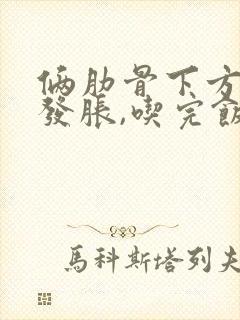 俩肋骨下方
發脹,喫完飯
馬科斯塔列夫